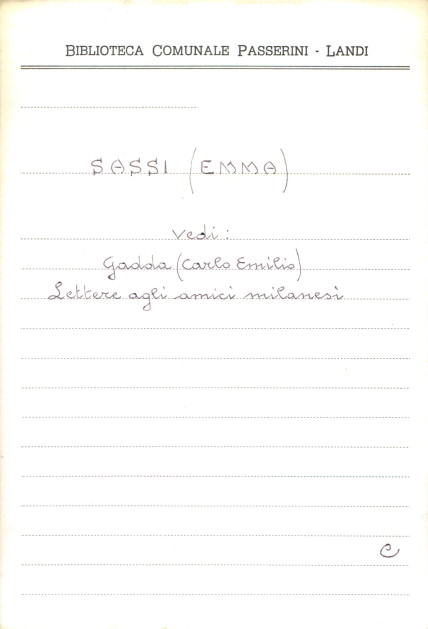 BIBLIOTECA COMUNALE PASSERINI - LANDI
SASSI (EMMA)
Vedi:
Gadda (Carlo Emilio)
Lettere agli amici milanesi
C